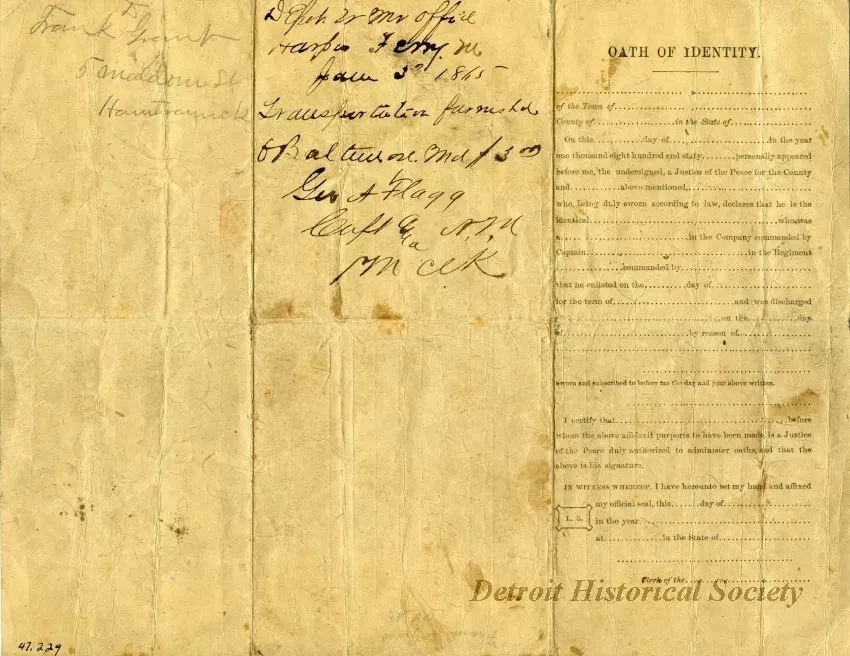 Frank Grant
5 St
Hamtramck
Depot Qr Mr office
Harpers Ferry
June 3 1865
Transportation furnishd
to Baltimore. Md
Geo A Flagg
Capt
OATH OF IDENTITY.
of the Town of
County of in the State of
On this day of in the year
one thousand eight hundred and sixty personally appeared
before me, the undersigned, a Justice of the Peace for the County
and above mentioned,
who, being duly sworn according to law, declares that he is the
identical who was
a in the Company commanded by
Captain in the Regiment
commanded by
that he enlisted on the day of
for the term of and was discharged
on the day
of by reason of
Sworn and subscribed to before me the day and year above written.
I certify that before
whom the above affidavit purports to have been made, is a Justice
of the Peace duly authorized to administer oaths, and that the
above is his signature.
IN WITNESS WHEREOF, I have hereunto set my hand and affixed
my official seal, this day of
L. S. in the year
at in the State of
Clerk of the
Detroit Historical Society
47.229